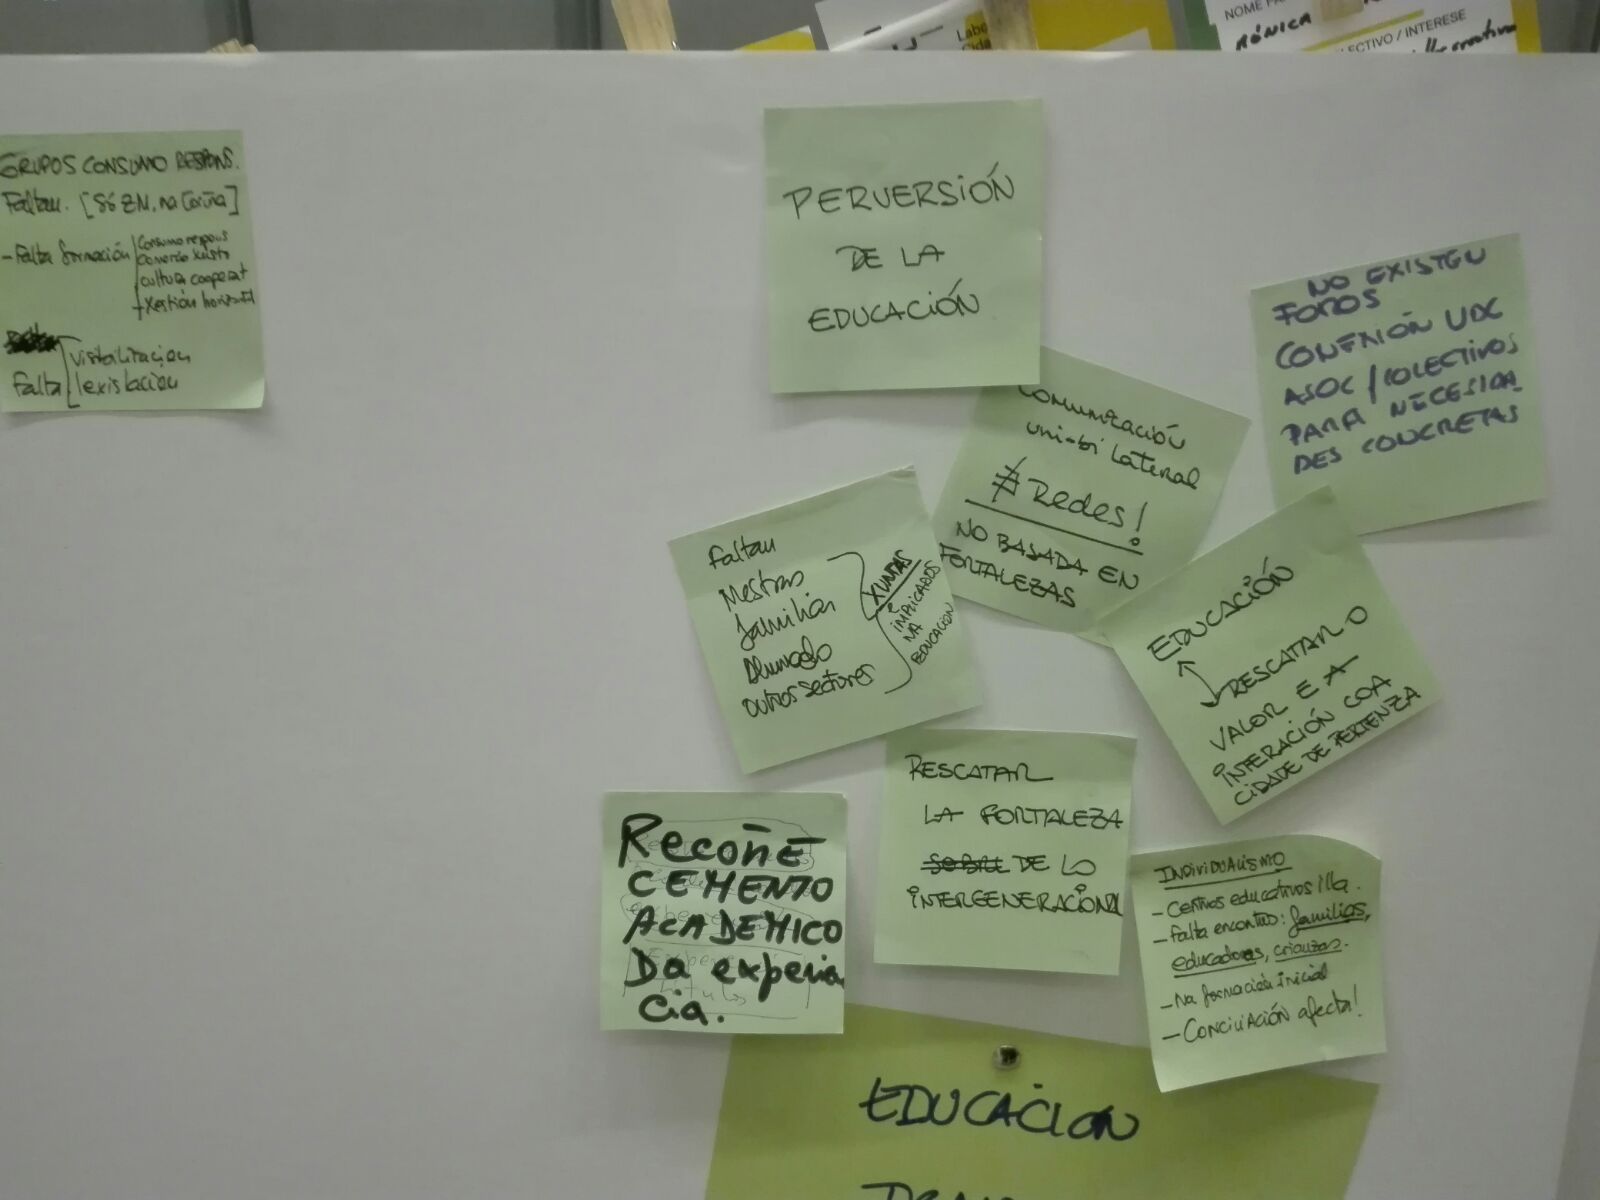 NOME
MÓNICA
ECTIVO / INTERESE
Labe
Cida
GRUPOS CONSUMO RESPONS.
Faltan. [Só ZN, na Coruña]
- Falta formación
Consumo respons
Comercio xusto
cultura cooperat
+ Xestión horizontal
Falta
visibilizacion
lexislacion
PERVERSIÓN
DE LA
EDUCACIÓN
NO EXISTEN
FOROS
CONEXIÓN UDC
ASOC / COLECTIVOS
PARA NECESIDA-
DES CONCRETAS
Comunicación
uni-bi lateral
≠ Redes!
NO BASADA EN
FORTALEZAS
Faltan
Mestras
familias
Alumnado
outros sectores
XUNTAS
IMPLICADOS
NA
EDUCACION
EDUCACIÓN
RESCATAR O
VALOR E A
INTERACIÓN COA
CIDADE DE PERTENZA
RESCATAR
LA FORTALEZA
SOBRE DE LO
INTERGENERACIONAL
RECOÑE
CEMENTO
ACADEMICO
Da experien
cia.
INDIVIDUALISMO
- Centros educativos illa.
- Falta encontro: familias,
educadoras, crianzas.
- Na formación inicial
- CONCILIACIÓN afecta!
EDUCACION